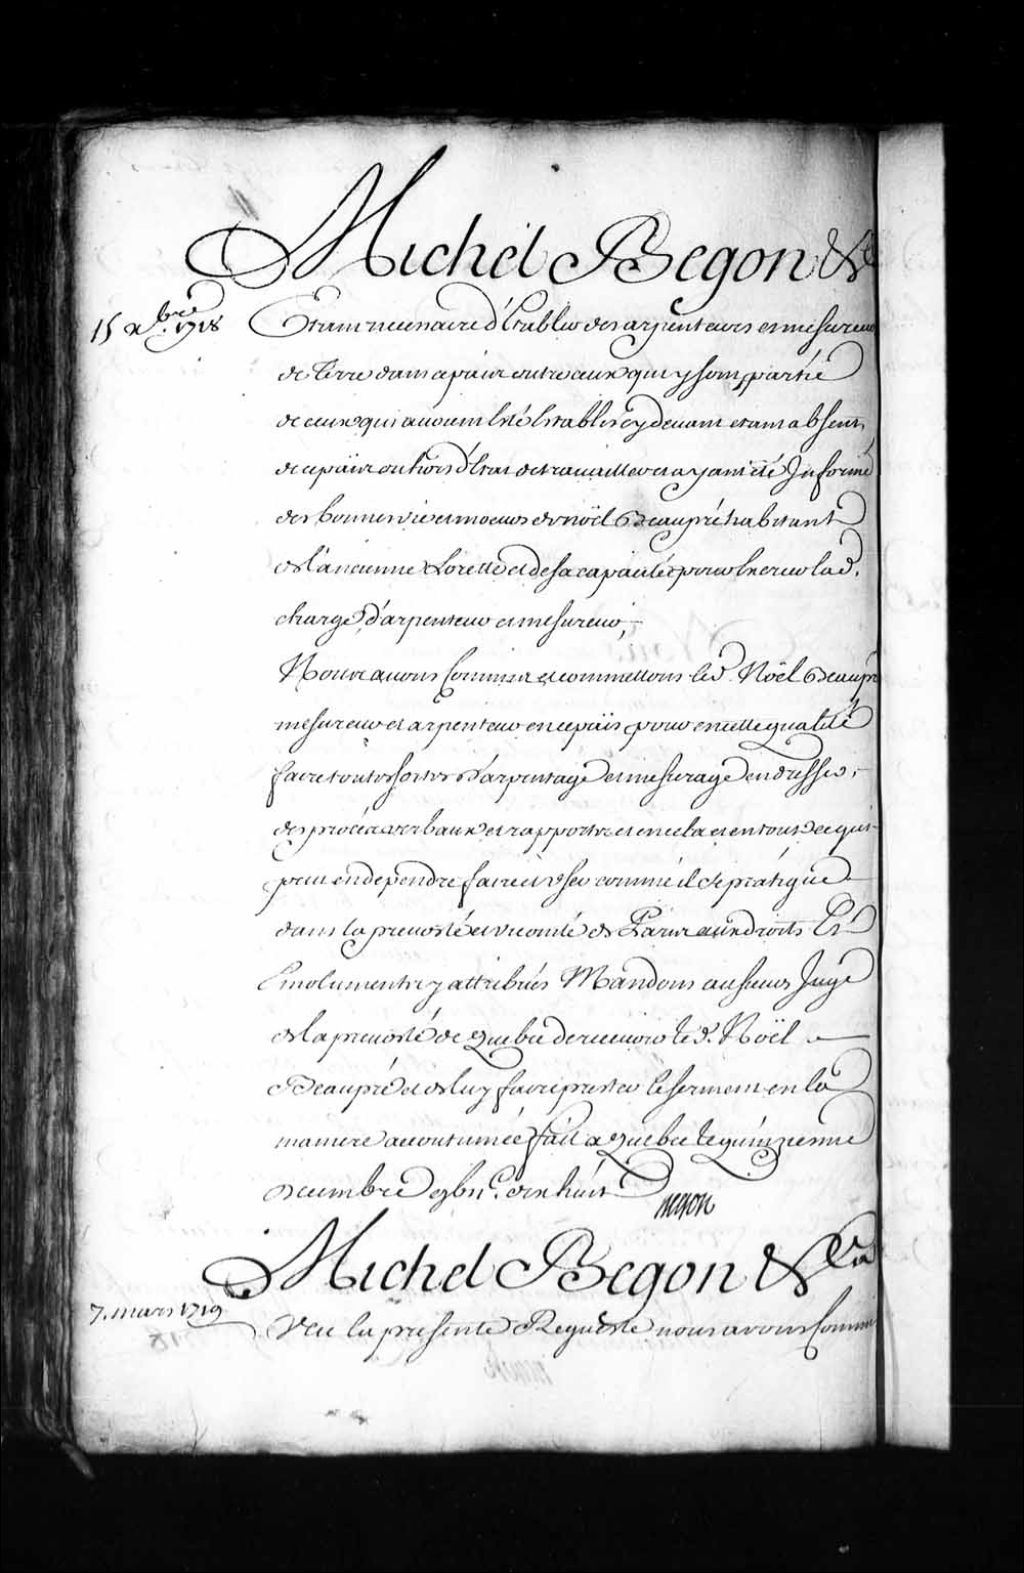 Michel Begon &c
15 xbre 1718
Etant necessaire d'Etablir des arpenteurs et mesureurs
de terre dans ce païs outre ceux qui y sont, partie
de ceux qui avoient Eté Etablis cy devant etans absens
de ce païs ou hors d'Etat de travailler et ayant été Informé
des bonnes vie et moeurs de Noël Beaupré habitant
de l'ancienne Lorette et de sa capacité pour Exercer lad.
charge d'arpenteur et mesureur,
Nous avons Commis et commettons led. Noël Beaupré
mesureur et arpenteur en ce païs pour en cette qualité
faire toutes sortes d'arpentage et mesurage en dresser
des procès verbaux et rapports et en cela et en tout ce qui
peut en dependre faire et user comme il se pratique
dans la prevosté et vicomté de Paris aux droits Et
Emolumens y attribués Mandons au sieur Juge
de la prevosté de Quebec de recevoir le d. Noël
Beaupré et de luy faire prester le serment en la
maniere accoutumée fait a Quebec le quinzieme
decembre gbiic. dix huit
Begon
Michel Begon &ca
7. mars 1719
Veu la presente Requeste nous avons Commis